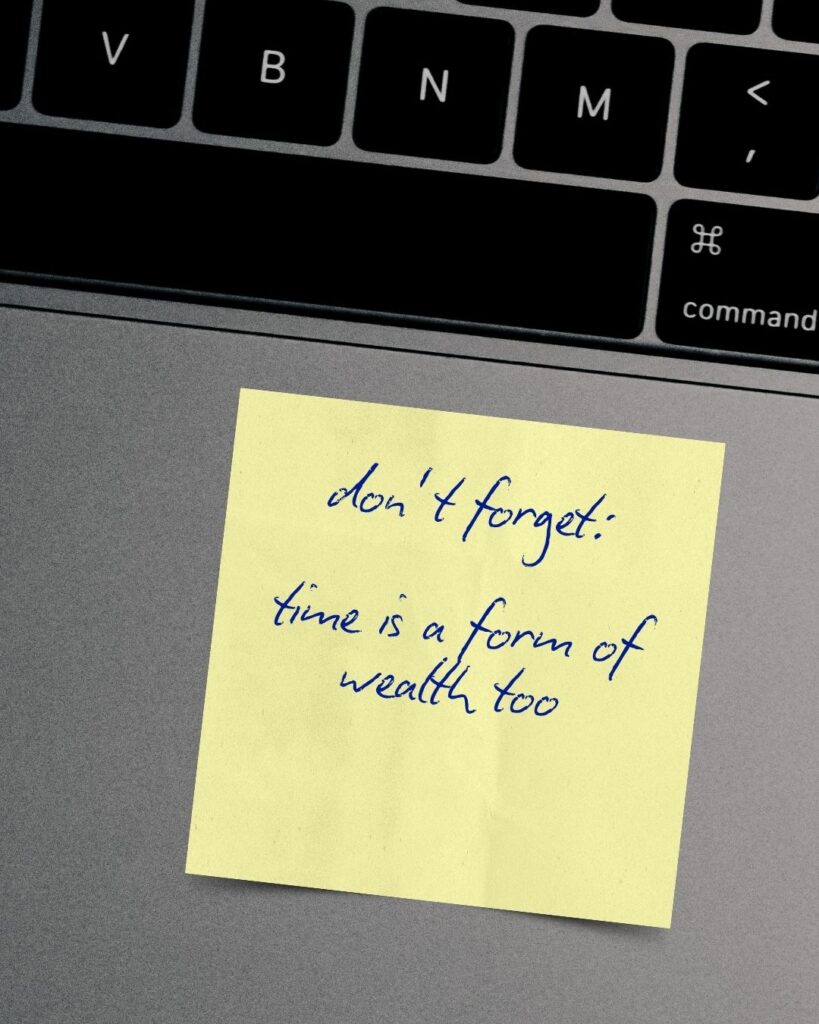 V
B
N
M
<
,
⌘
command
don't forget:
time is a form of
wealth too